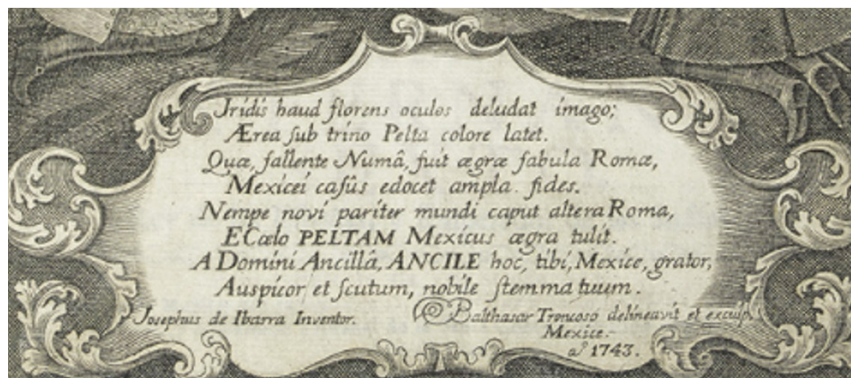 Iridis haud florens oculos deludat imago;
Ærea sub trino Pelta colore latet.
Quæ, fallente Numâ, fuit ægræ fabula Romæ,
Mexicei casûs edocet ampla fides.
Nempe novi pariter mundi caput altera Roma,
E Cœlo PELTAM Mexicus ægra tulit.
A Domini Ancillâ, ANCILE hoc, tibi, Mexice, grator,
Auspicor et scutum, nobile stemma tuum.
Josephus de Ibarra Inventor.
Balthasar Troncoso delineavit et exculp.
Mexice.
aº 1743.